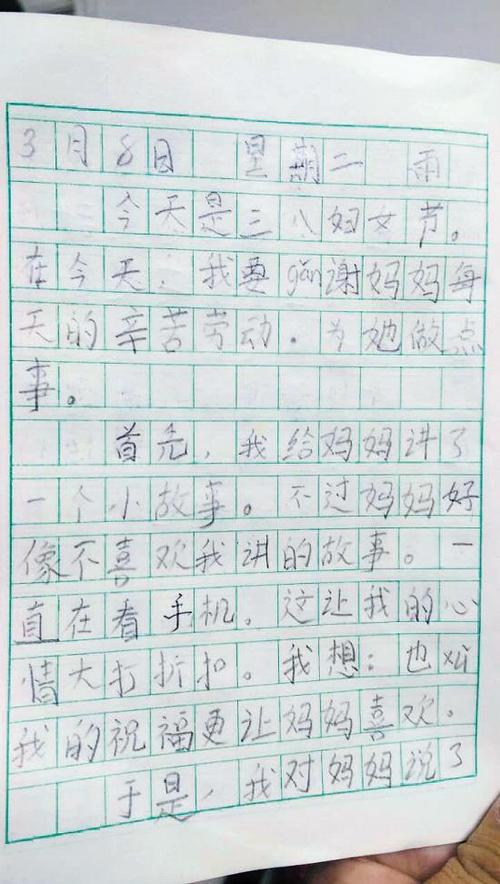 3月8日 星期二 雨
今天是三八妇女节。
在今天，我要gǎn谢妈妈每
天的辛苦劳动。为她做点
事。
首先，我给妈妈讲了
一个小故事。不过妈妈好
像不喜欢我讲的故事。一
直在看手机。这让我的心
情大打折扣。我想：也xǔ
我的祝福更让妈妈喜欢。
于是，我对妈妈说了